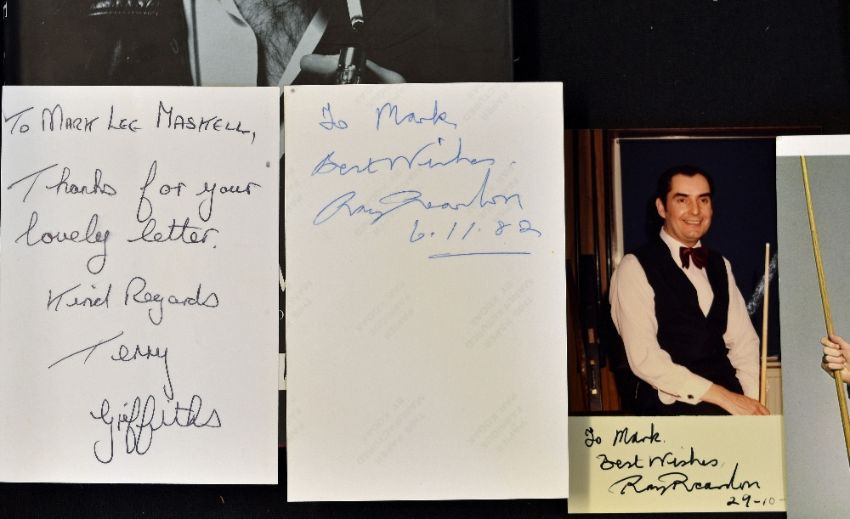 To Mark Lee Maskell,
Thanks for your
lovely letter.
Kind Regards
Terry
Griffiths
To Mark.
Best Wishes.
Ray Reardon
6.11.82
To Mark.
Best Wishes,
Ray Reardon
29-10-